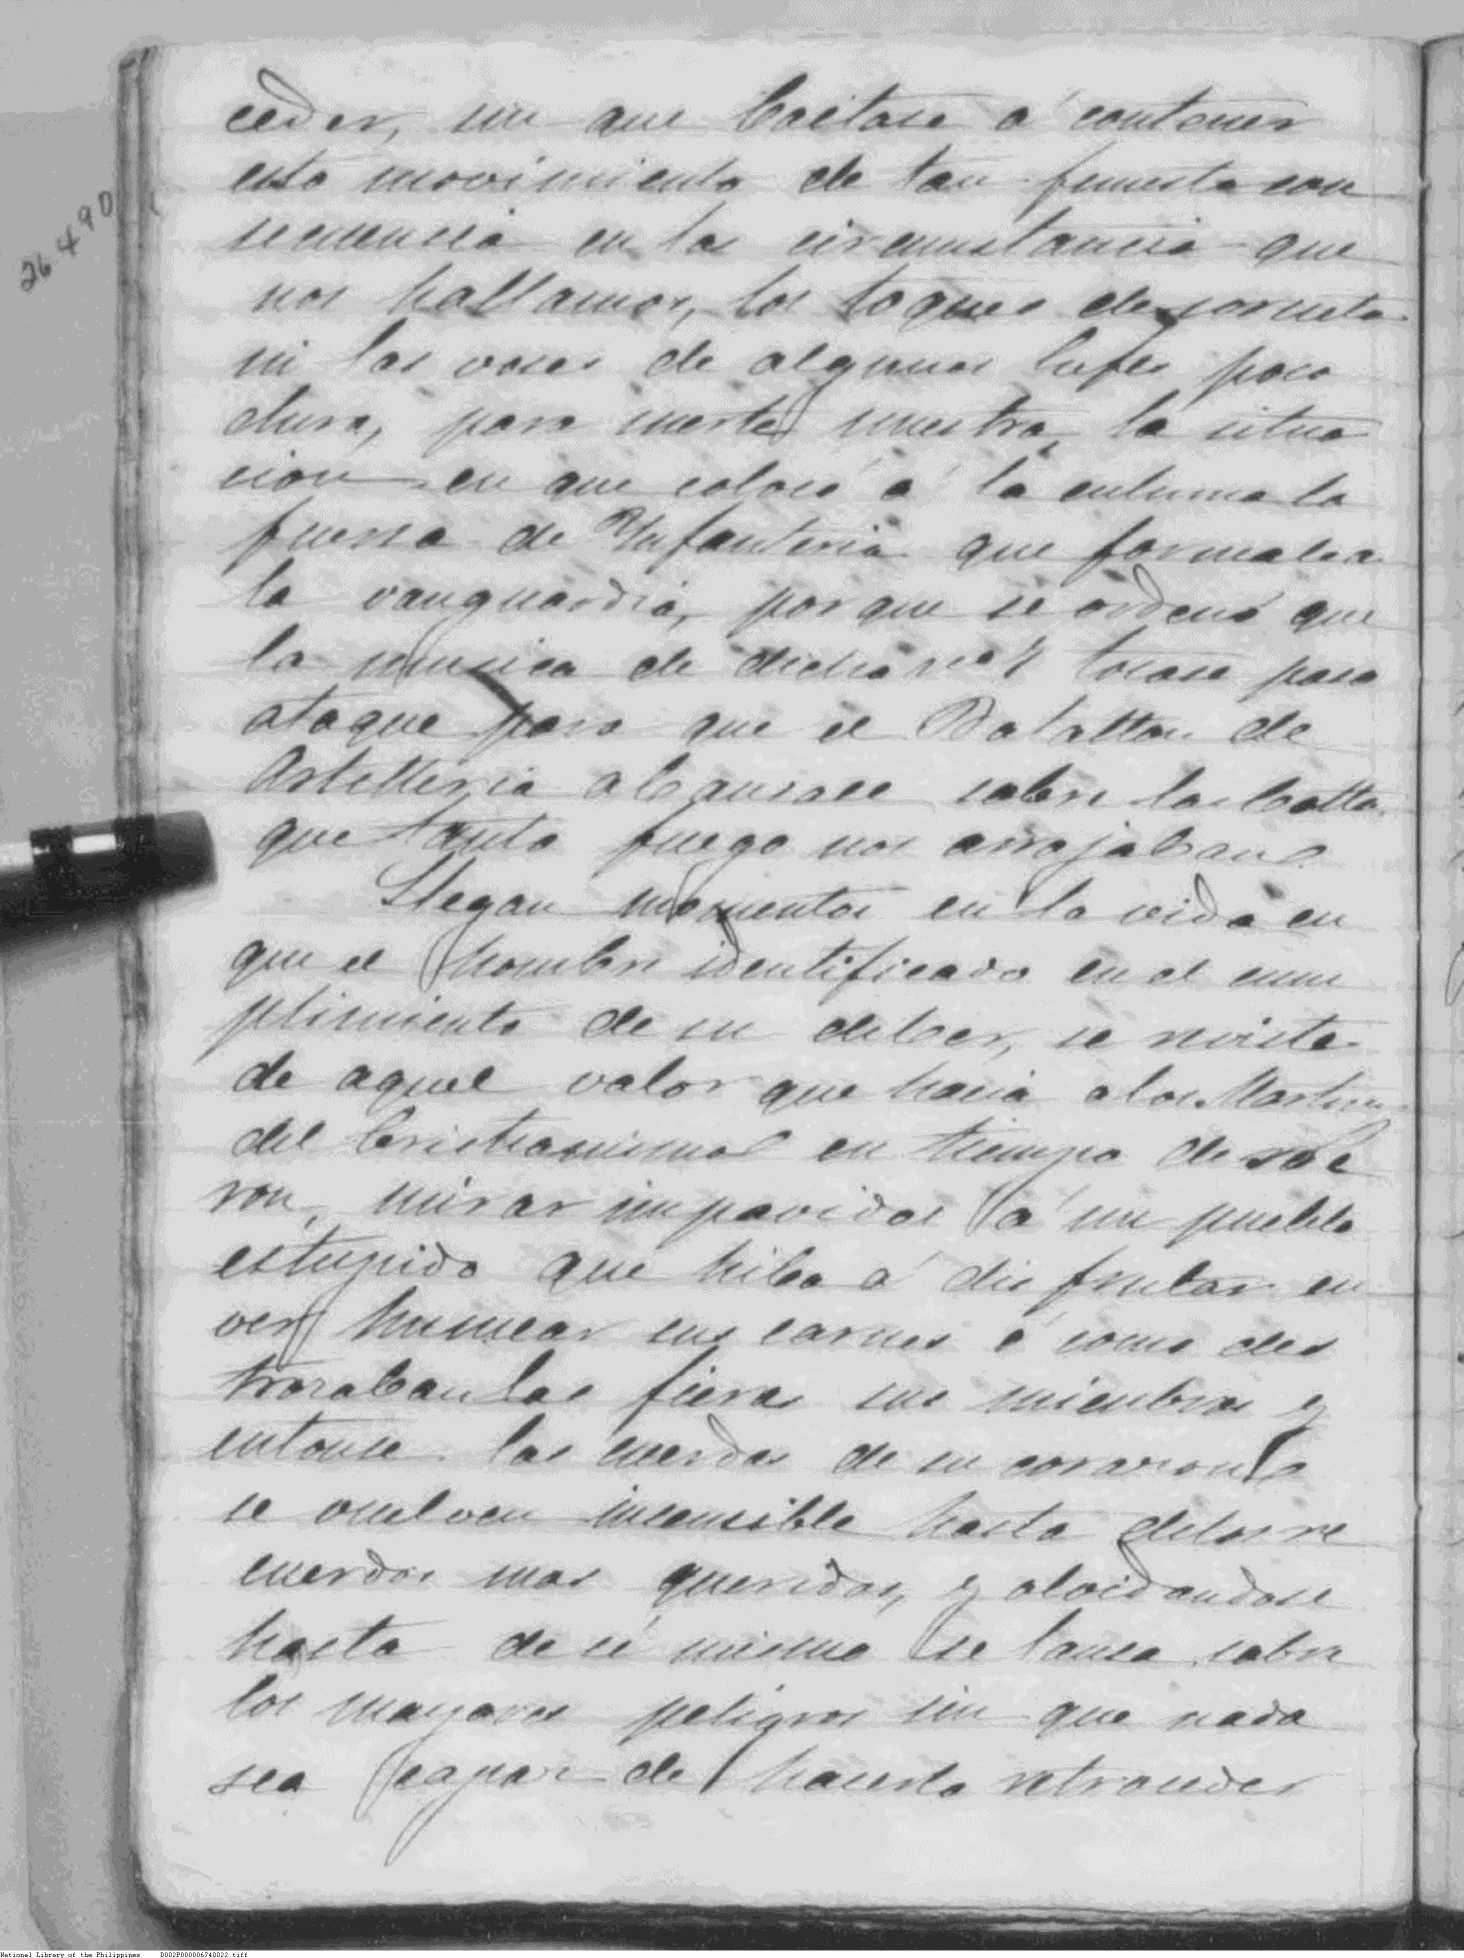 ceder, sin que bastase á contener
este movimiento de tan funesta con
secuencia en las circunstancia que
nos hallamos, los toques de corneta
ni las voses de algunos Gefes poco
dura, para suerte nuestra, la situa
cion en que colocó á la columna la
fuersa de Ynfanteria que formaba
la vanguardia, porque se ordenó que
la musica de dicha tocase paso
ataque para que el Batallon de
Artilleria abansase sobre las Cotta
que tanto fuego nos arrojaban
Llegan momentos en la vida en
que el hombre identificado en el cum
plimiento de su deber, se reviste
de aquel valor que hacia a los Martires
del Cristianismo en tiempo de Ne
ron, mirar impavidos á un pueblo
estupido que hiba á disfrutar en
ver humear sus carnes ó como des
trozaban las fieras sus miembros y
entonse las cuerdas de su corazon
se vuelven incensible hasta delos re
cuerdos mas queridos, y olvidandose
hasta de sí mismo se lansa sobre
los mayores peligros sin que nada
sea capaz de hacerlo retroceder
26490
National Library of the Philippines D002P000006740022.tiff